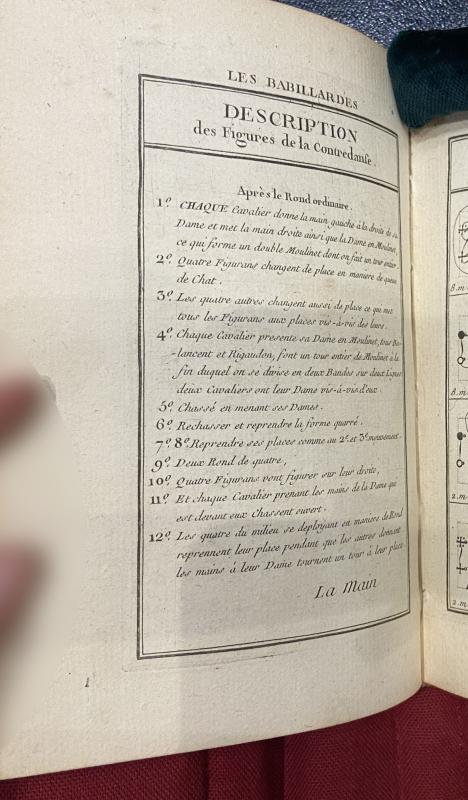 LES BABILLARDES
DESCRIPTION
des Figures de la Contredanse.
Après le Rond ordinaire.
1º. CHAQUE Cavalier donne la main gauche à la droite de sa
Dame et met la main droite ainsi que la Dame en Moulinet,
ce qui forme un double Moulinet dont on fait un tour entier.
2º. Quatre Figurans changent de place en maniere de queue
de Chat.
3º. Les quatre autres changent aussi de place ce qui met
tous les Figurans aux places vis-à-vis des leurs.
4º. Chaque Cavalier presente sa Dame en Moulinet, tous Ba-
-lancent et Rigaudon, font un tour entier de Moulinet à la
fin duquel on se divise en deux Bandes sur deux Lignes
deux Cavaliers ont leur Dame vis-à-vis d'eux.
5º. Chassé en menant ses Dames.
6º. Rechasser et reprendre la forme quarré.
7º. 8º. Reprendre ses places comme au 2º. et 3º. mouvement.
9º. Deux Rond de quatre,
10º. Quatre Figurans vont figurer sur leur droite,
11º. Et chaque Cavalier prenant les mains de la Dame qui
est devant eux Chassent ouvert.
12º. Les quatre du milieu se deployant en maniere de Rond
reprennent leur place pendant que les autres donnant
les mains à leur Dame tournent un tour à leur place
La Main
8.m
2.m
2.m